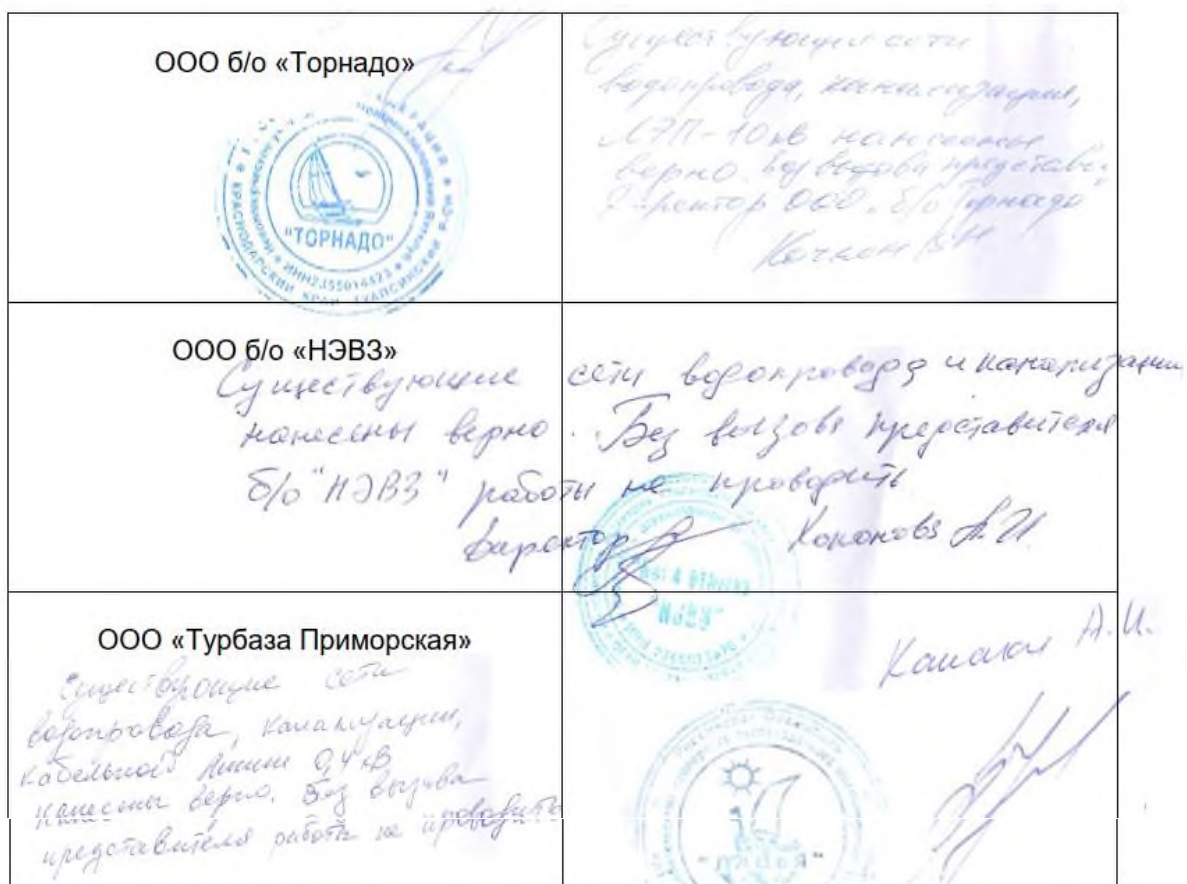 ООО б/о «Торнадо»
Существующие сети
водопровода, канализации,
ЛЭП-10кв нанесены
верно. Без вызова представ.
Директор ООО б/о Торнадо
"ТОРНАДО"
КРАСНОДАРСКИЙ КРАЙ ТУАПСИНСКИЙ Р-ОН
ООО б/о «НЭВЗ»
Существующие сети водопровода и канализации
нанесены верно. Без вызова представителя
б/о "НЭВЗ" работы не проводить
Директор Кононова А.И
ООО «Турбаза Приморская»
Существующие сети
водопровода, канализации,
кабельной линии 0,4 кВ
нанесены верно. Без вызова
представителя работы не проводить
А.И.
"ЛАДЬЯ"